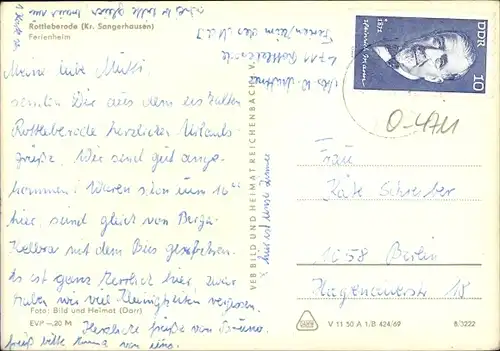 Rottleberode (Kr. Sangerhausen)
Ferienheim
Meine liebe Mutti!
senden Dir aus dem
Rottleberode herzliche Urlaubs-
grüße. Wir sind gut ange-
kommen! Waren schon um 16
hier, sind gleich von Berga-
Kelbra mit dem Bus gefahren.
Es ist ganz herrlich hier, zwar
haben wir viel Kleinigkeiten vergessen.
Foto: Bild und Heimat (Darr)
EVP –,20 M
Herzliche Grüße von Bruno.
VEB BILD UND HEIMAT REICHENBACH I. V.
x hier ist unser Zimmer
4711 Rottleberode
DDR
10
1871
Heinrich Mann
O-4711
Frau
Käte Schreiber
1058 Berlin
Hagenauerstr. 18
V 11 50 A 1/B 424/69
8/3222